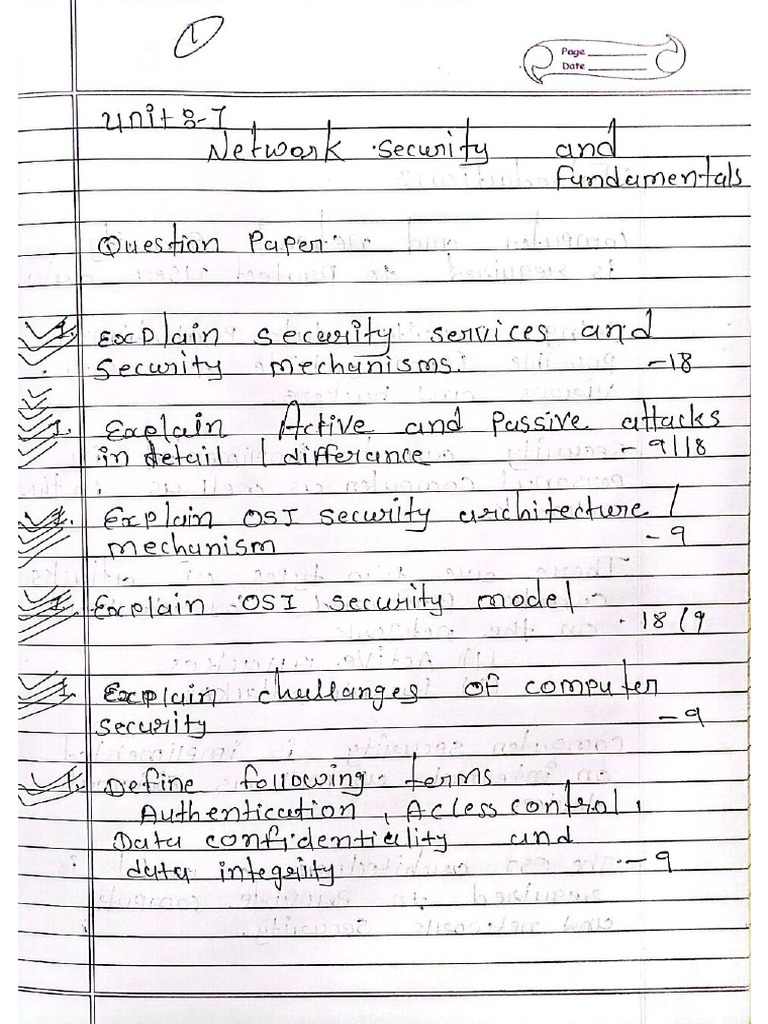 1
Page
Date
Unit :- I
Network Security and
fundamentals
Question Paper:
1. Explain security services and
security mechanisms. -18
1. Explain Active and Passive attacks
in detail / differance - 9/18
1. Explain OSI security architecture /
mechanism - 9
1. Explain OSI security model -
18/9
1. Explain challanges of computer
security - 9
1. Define following terms,
Authentication, Access control,
Data confidentiality and
data integrity - 9